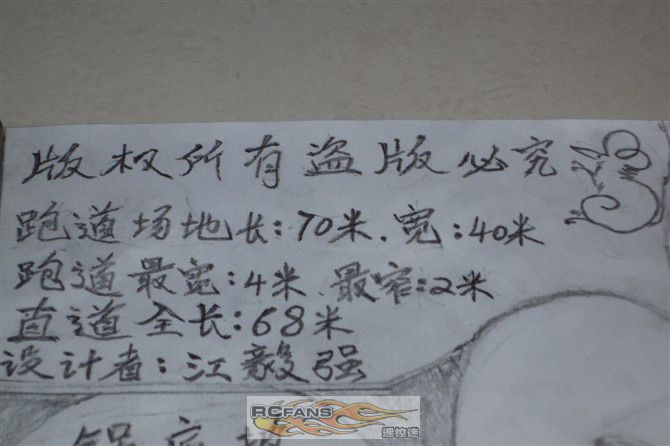 版权所有盗版必究
跑道场地长:70米.宽:40米
跑道最宽:4米.最窄:2米
直道全长:68米
设计者:江毅强
RCFANS
遥控迷